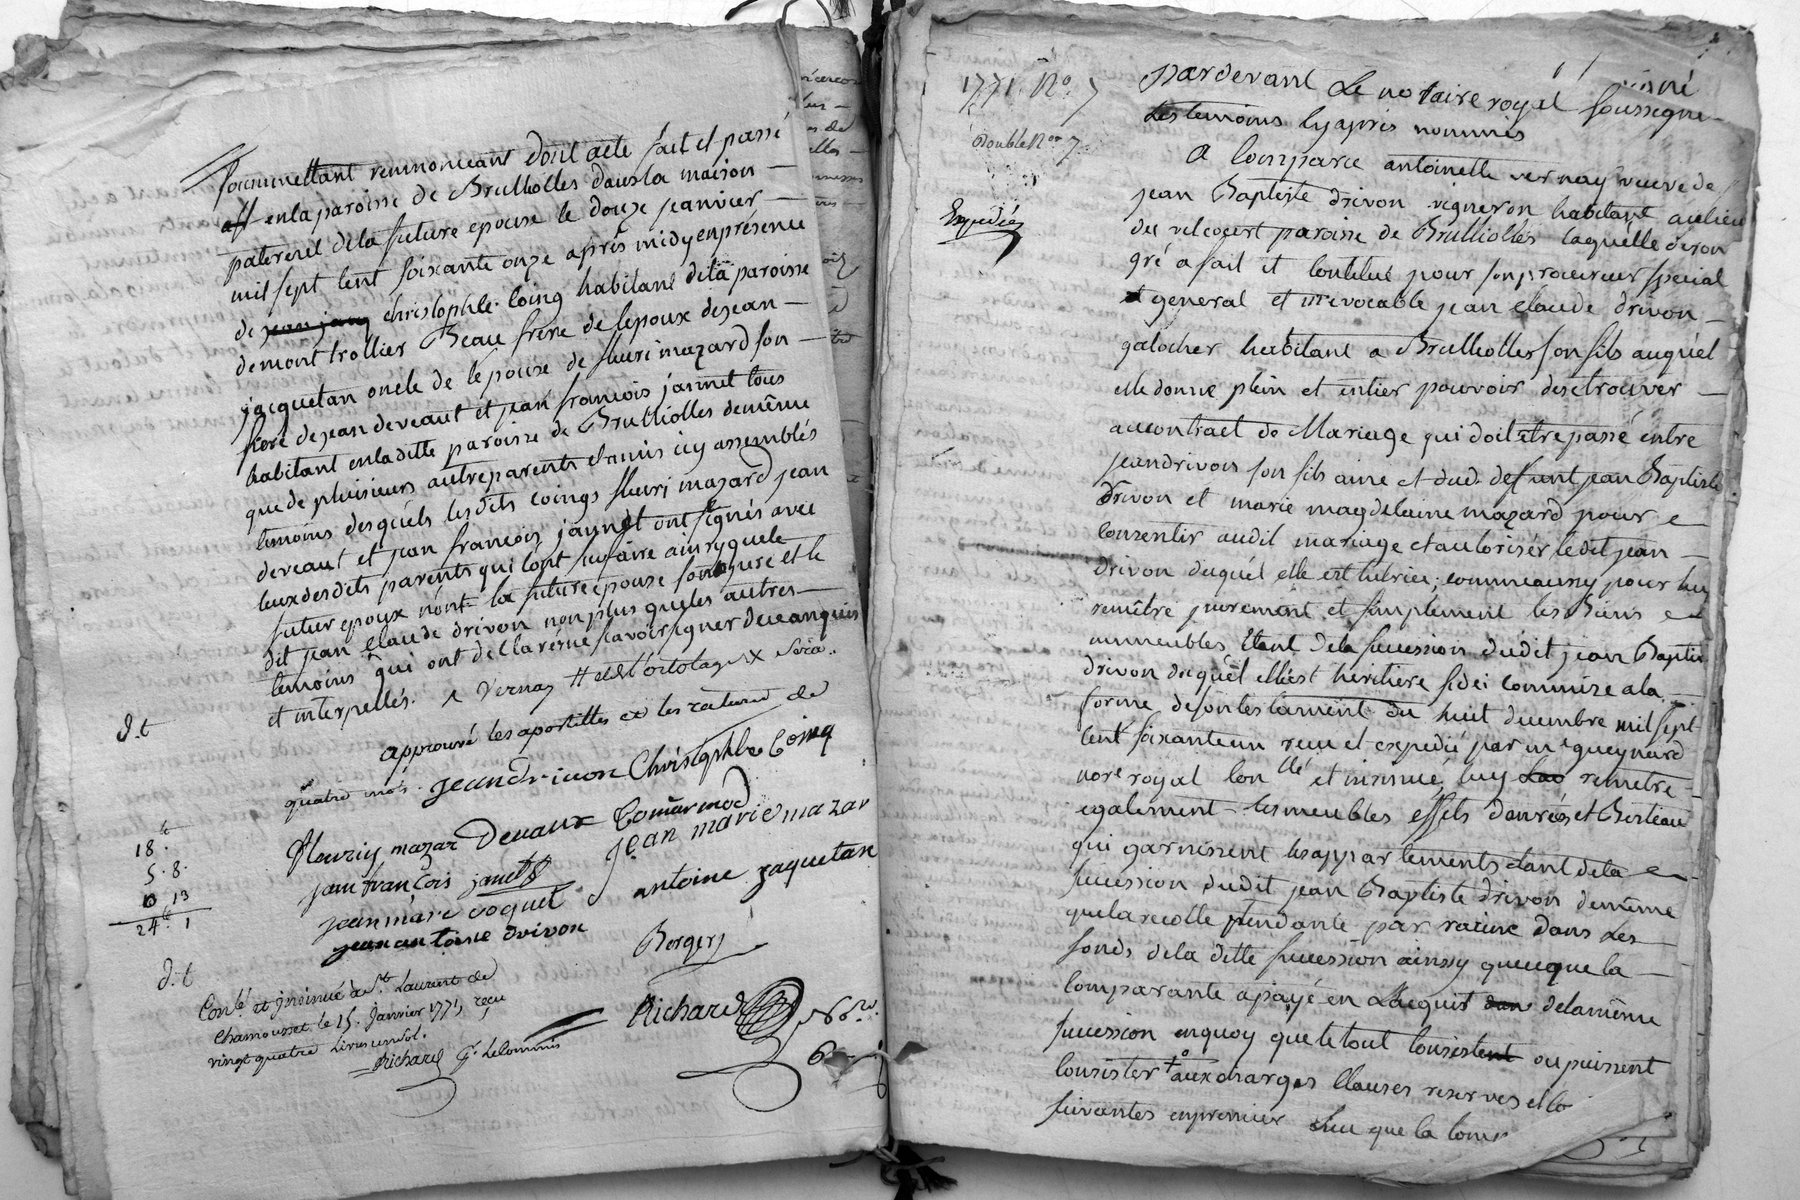 soummettant rennonceant dont acte fait et passé
en la paroisse de Brulliolles dans la maison
paternel de la future epouse le douze jeanvier
mil sept cent soixante onze après midy en présence
de christophle coing habitant de la paroisse
de montrottier Beau frere de lepoux de jean
jacquetan oncle de lépouse de fleuri mazard son
frere de jean deveaut et jean francois jannet tous
habitant en la ditte paroisse de Brulliolles de même
que de plusieurs autre parents et amis icy assemblés
temoins desquels lesdits coings fleuri mazard jean
deveaut et jean francois jannet ont signés avec
ceux desdits parents qui l'ont su faire ainsy que le
futur epoux non la future epouse et le
dit jean claude drivon non plus que les autres
temoins qui ont déclaré ne savoir signer de ce enquis
et interpellés. Vernay
D.t
approuvé les apostilles et les ratures de
quatre mots. jean drivon Christophle Coing
fleuriy mazar Devaux
jean marie mazar
jean françois janet
antoine jaquetan
jean marc coquet
jean antoine drivon
Bergery
18.
5. 8.
0 13
24. 1
D.t
Conlé et insinué a St Laurent de
Chamousset le 15. Janvier 1771, reçu
vingt quatre livres un sol.
Richard
Richard
1771. No. 7
Double No. 7
Expediée
Pardevant Le notaire royal soussigné
Les temoins cy après nommés
A Comparue antoinette vernay veuve de
jean Baptiste drivon vigneron habitant au lieu
du vilcourt paroisse de Brulliolles laquelle de son
gré a fait et constitué pour son procureur special
et general et irrevocable jean claude drivon
galocher habitant a Brulliolles son fils auquel
elle donne plein et entier pouvoir de se trouver
au contract de Mariage qui doit etre passé entre
jean drivon son fils ainé et dud. defunt jean Baptiste
drivon et marie magdelaine mazard pour
consentir audit mariage et autoriser ledit jean
drivon duquel elle est tutrice; comme aussy pour luy
remêtre purement et simplement les Biens
immeubles étant de la succession dudit jean Baptiste
drivon duquel elle est héritiere fidei commise a la
forme de son testament du huit decembre mil sept
cent soixante un reçu et expedié par me gueynard
nore royal con[tr]lé et insinué, luy remetre
egalement les meubles effets danrées et Bestiau
qui garnissent les appartements etant de la
succession dudit jean Baptiste drivon de même
que la recolte pendante par racine dans les
fonds de la ditte succession ainsy que ce que la
comparante a payé en l'acquit de la même
succession en quoy que le tout consistent ou puissent
consister aux charges clauses reserves et co
suivantes en premier lieu que la comp